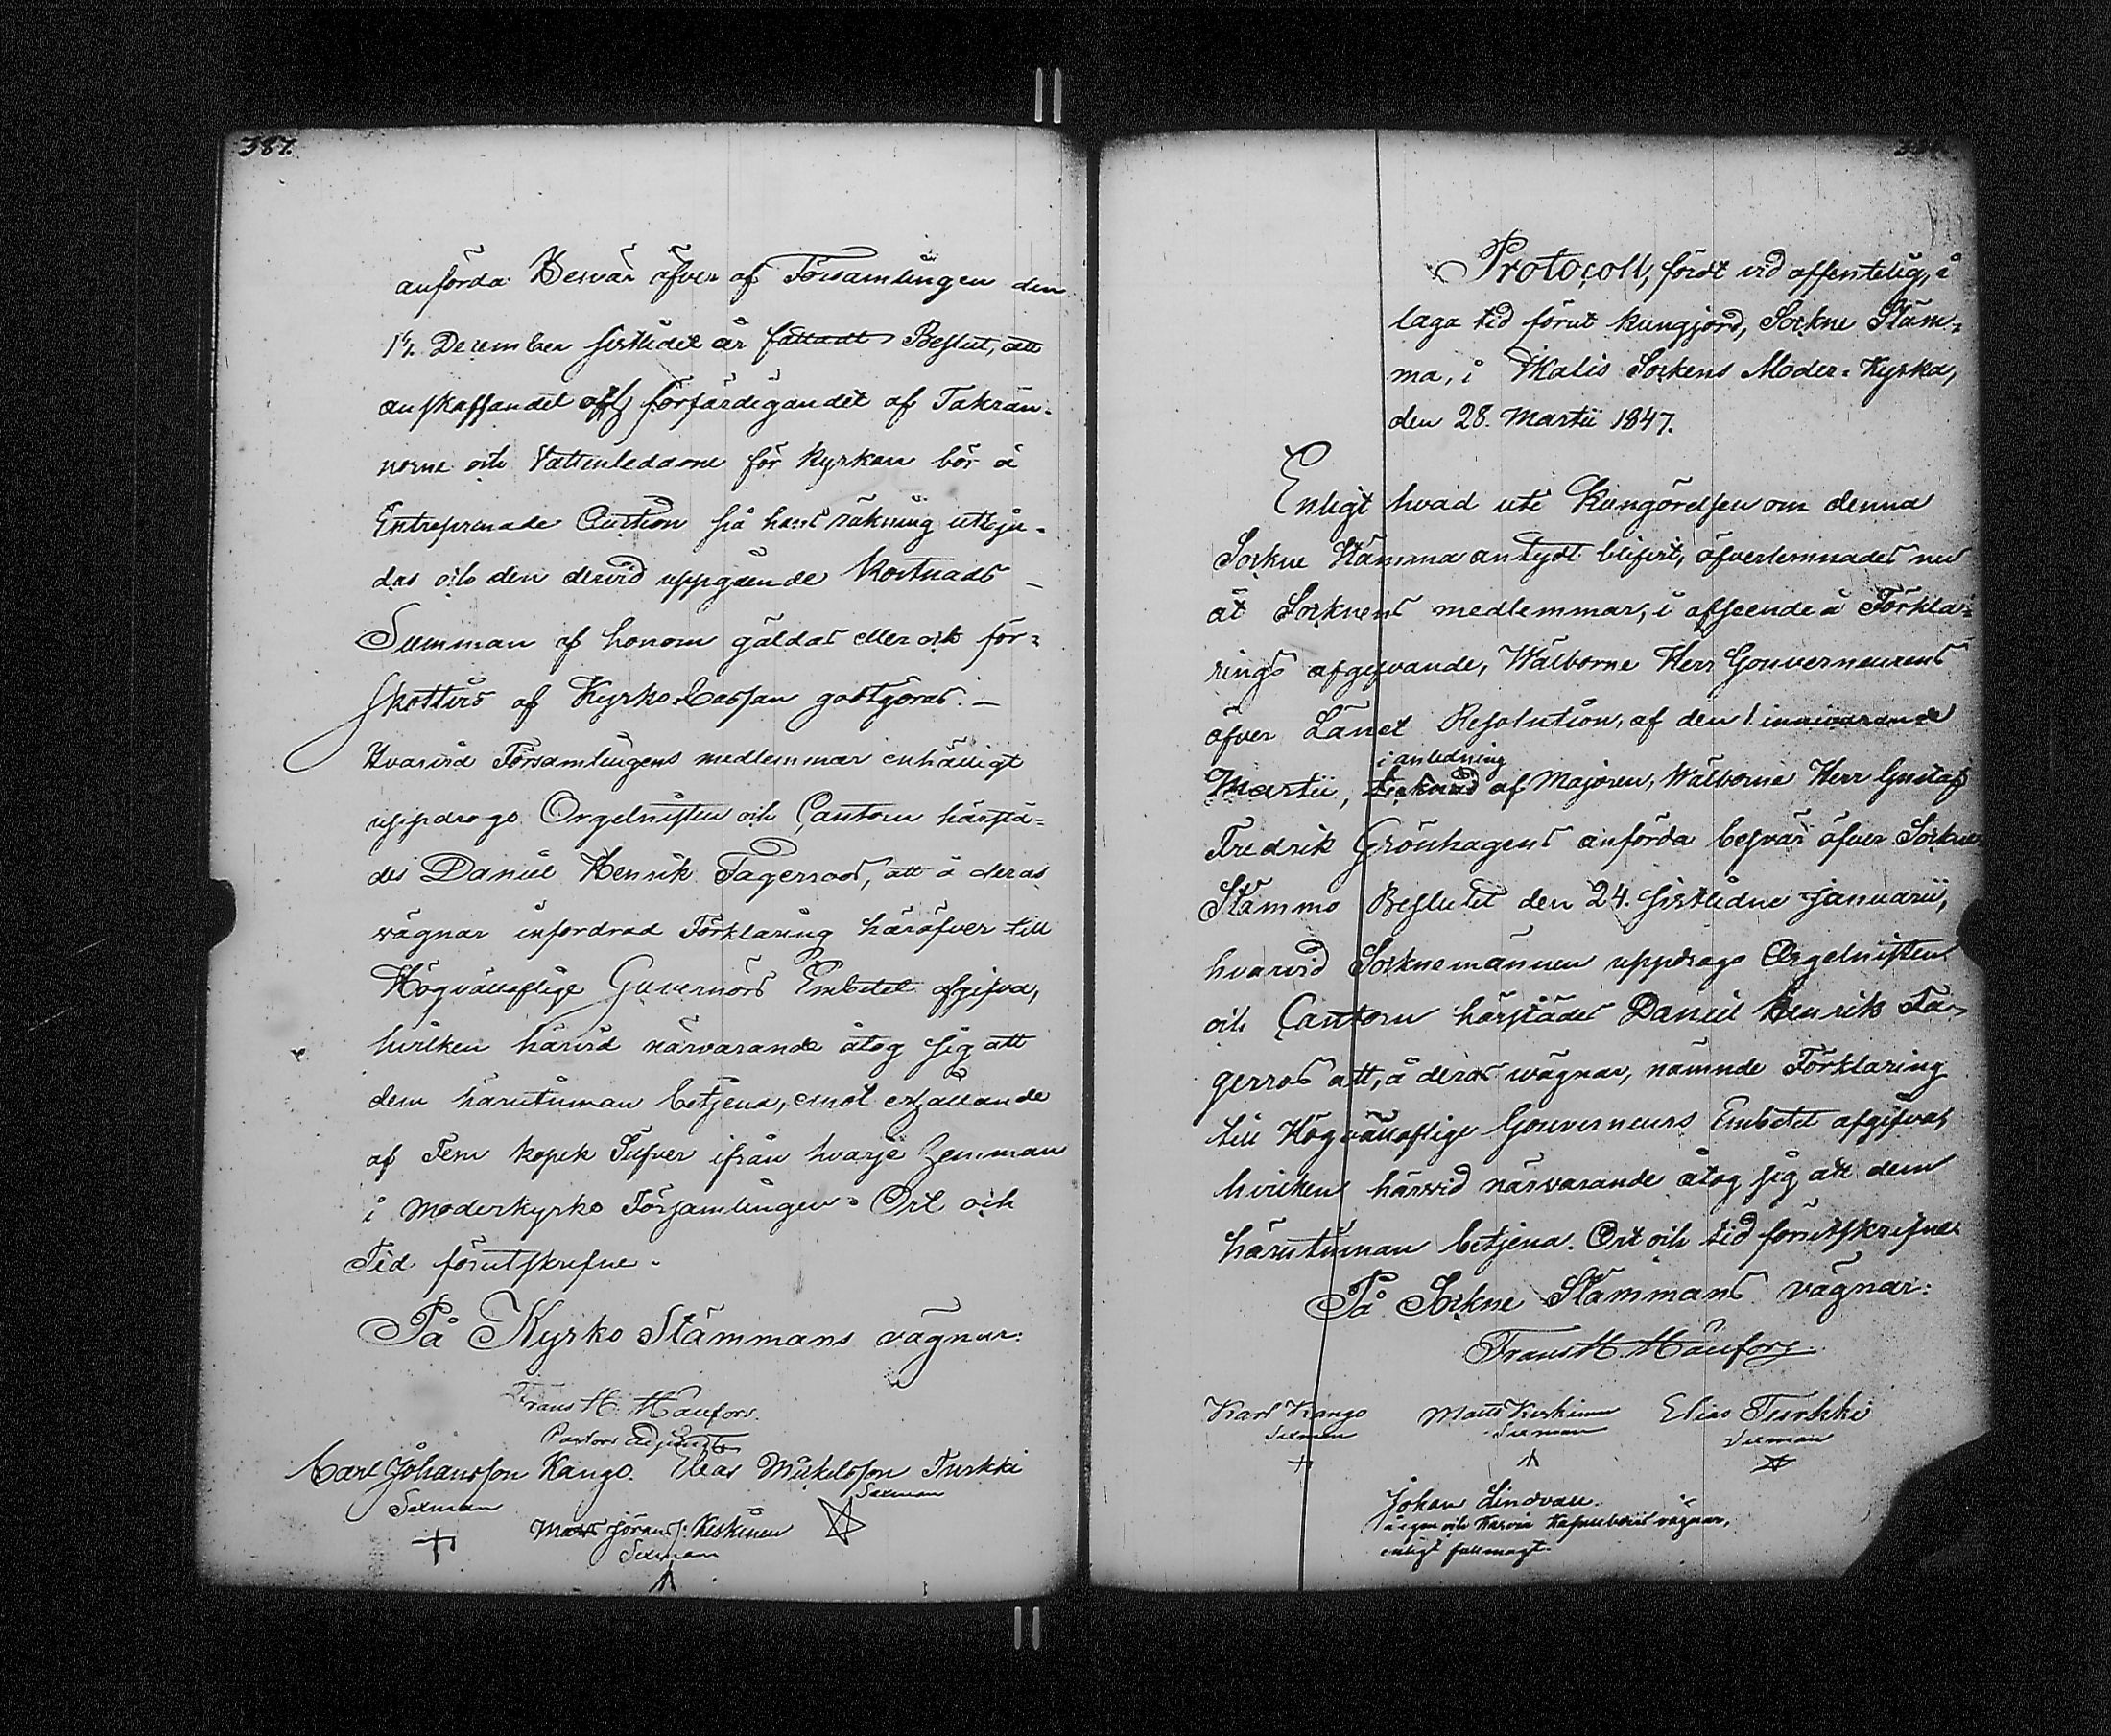 387.
anförda Besvär öfver af Församlingen den
17. December sistlidet år fattadt Beslut, att
anskaffandet och förfärdigandet af Takrän-
norne och Vattenledarne för kyrkan bör å
Entreprenade Auction på hans räkning utbju-
das och den dervid uppgående Kostnads
Summan af honom gäldas eller ock för-
skottvis af Kyrko Cassan godtgöras. —
Hvarvid Församlingens medlemmar enhälligt
uppdrogo Orgelnisten och Cantorn härstä-
des Daniel Henrik Fagerroos, att å deras
vägnar infordrad Förklaring häröfver till
Högvällofliga Guvernörs Embetet afgifva,
hvilken härvid närvarande åtog sig att
dem härutinnan betjena, emot erhållande
af Fem kopek Silfver ifrån hvarje Hemman
i Moderkyrko Församlingen. Ort och
Tid förutskrefne.
På Kyrko Stämmans vägnar:
Frans H. Hänfors.
Pastors Adjunct
Carl Johansson Kango. Elias Mickelsson Turkki
Sexman Sexman
Matts Jörans s: Keskinen
Sexman
Protocoll, fördt vid offentelig, i
laga tid förut kungjord, Sockne Stäm-
ma, i Ikalis Sockens Moder-Kyrka,
den 28. Martii 1847.
Enligt hvad uti Kungörelsen om denna
Sockne Stämma antydt blifvit, öfverlemnades nu
åt Socknens medlemmar, i afseende å Förkla-
rings afgifvande, Wälborne Herr Gouverneurens
öfver Länet Resolution, af den 1. innevarande
i anledning
Martii, af Majoren, Wälborne Herr Gustaf
Fredrik Grönhagens anförda besvär öfver Sockne
Stämmo Beslutet den 24. sistlidne Januarii,
hvarvid Socknemännen uppdrogo Orgelnisten
och Cantorn härstädes Daniel Henrik Fa-
gerros att, å deras wägnar, nämnde Förklaring
till Högvällofliga Gouverneurs Embetet afgifva,
hvilken härvid närvarande åtog sig att dem
härutinnan betjena. Ort och tid förutskrifne
På Sockne Stämmans vägnar:
Frans H. Hänfors.
Karl Kango Matts Keskinen Elias Turkki
Sexman Sexman Sexman
Johan Lindvall.
å egen och Karvia Kapellboers vägnar,
enligt fullmagt.